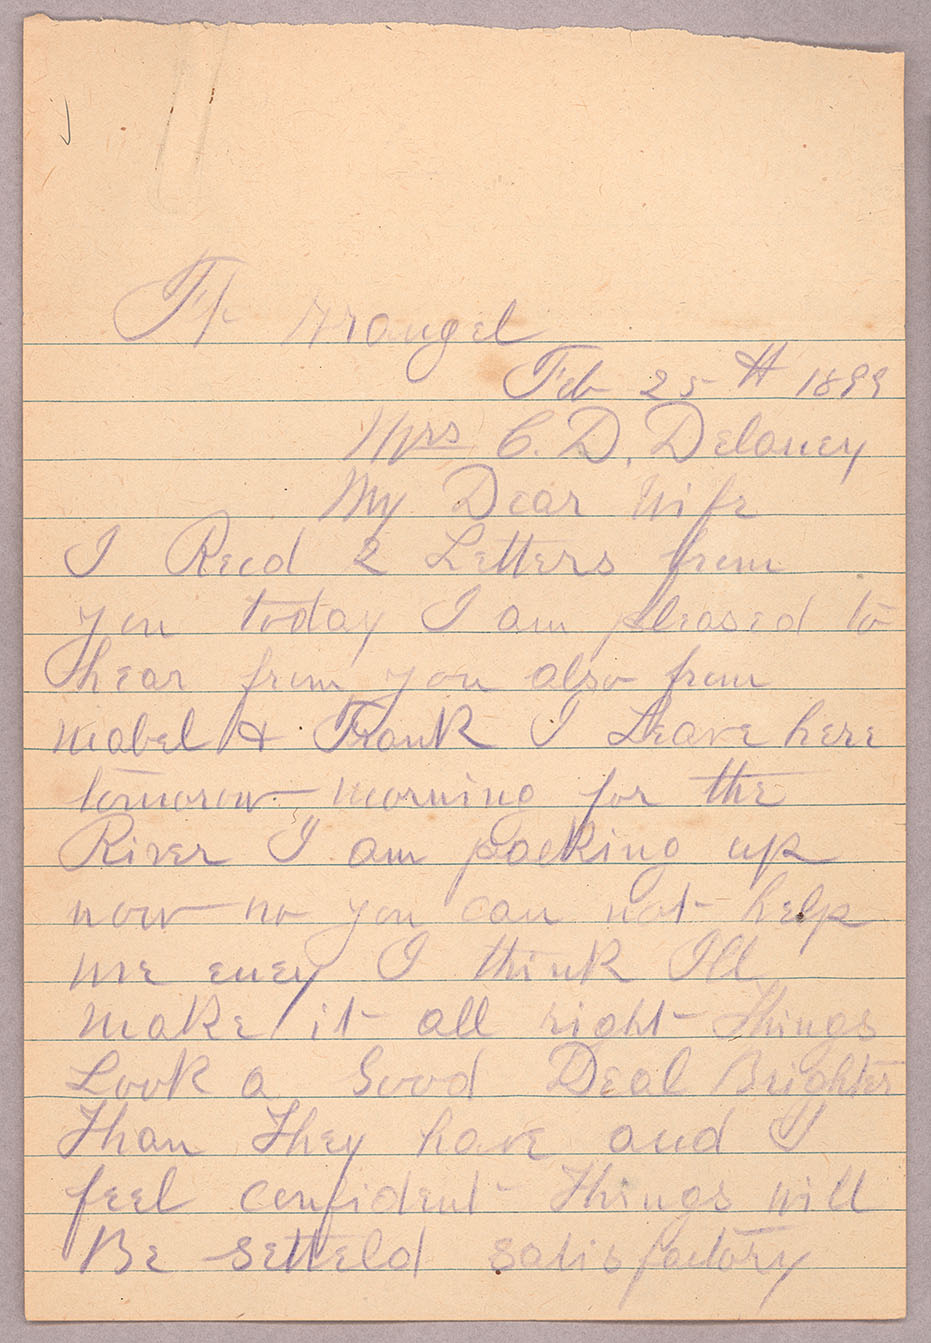 Ft Wrangel
Feb 25th 1899
Mrs C. D. Delaney
My Dear Wife
I Recd 2 Letters from
you today I am pleased to
hear from you also from
mabel & Frank I Leave here
tomorow morning for the
River I am packing up
now no you can not help
me eney I think Ill
make it all right Things
Look a Good Deal Brighter
Than They have and I
feel confident Things will
Be setteld satisfactory